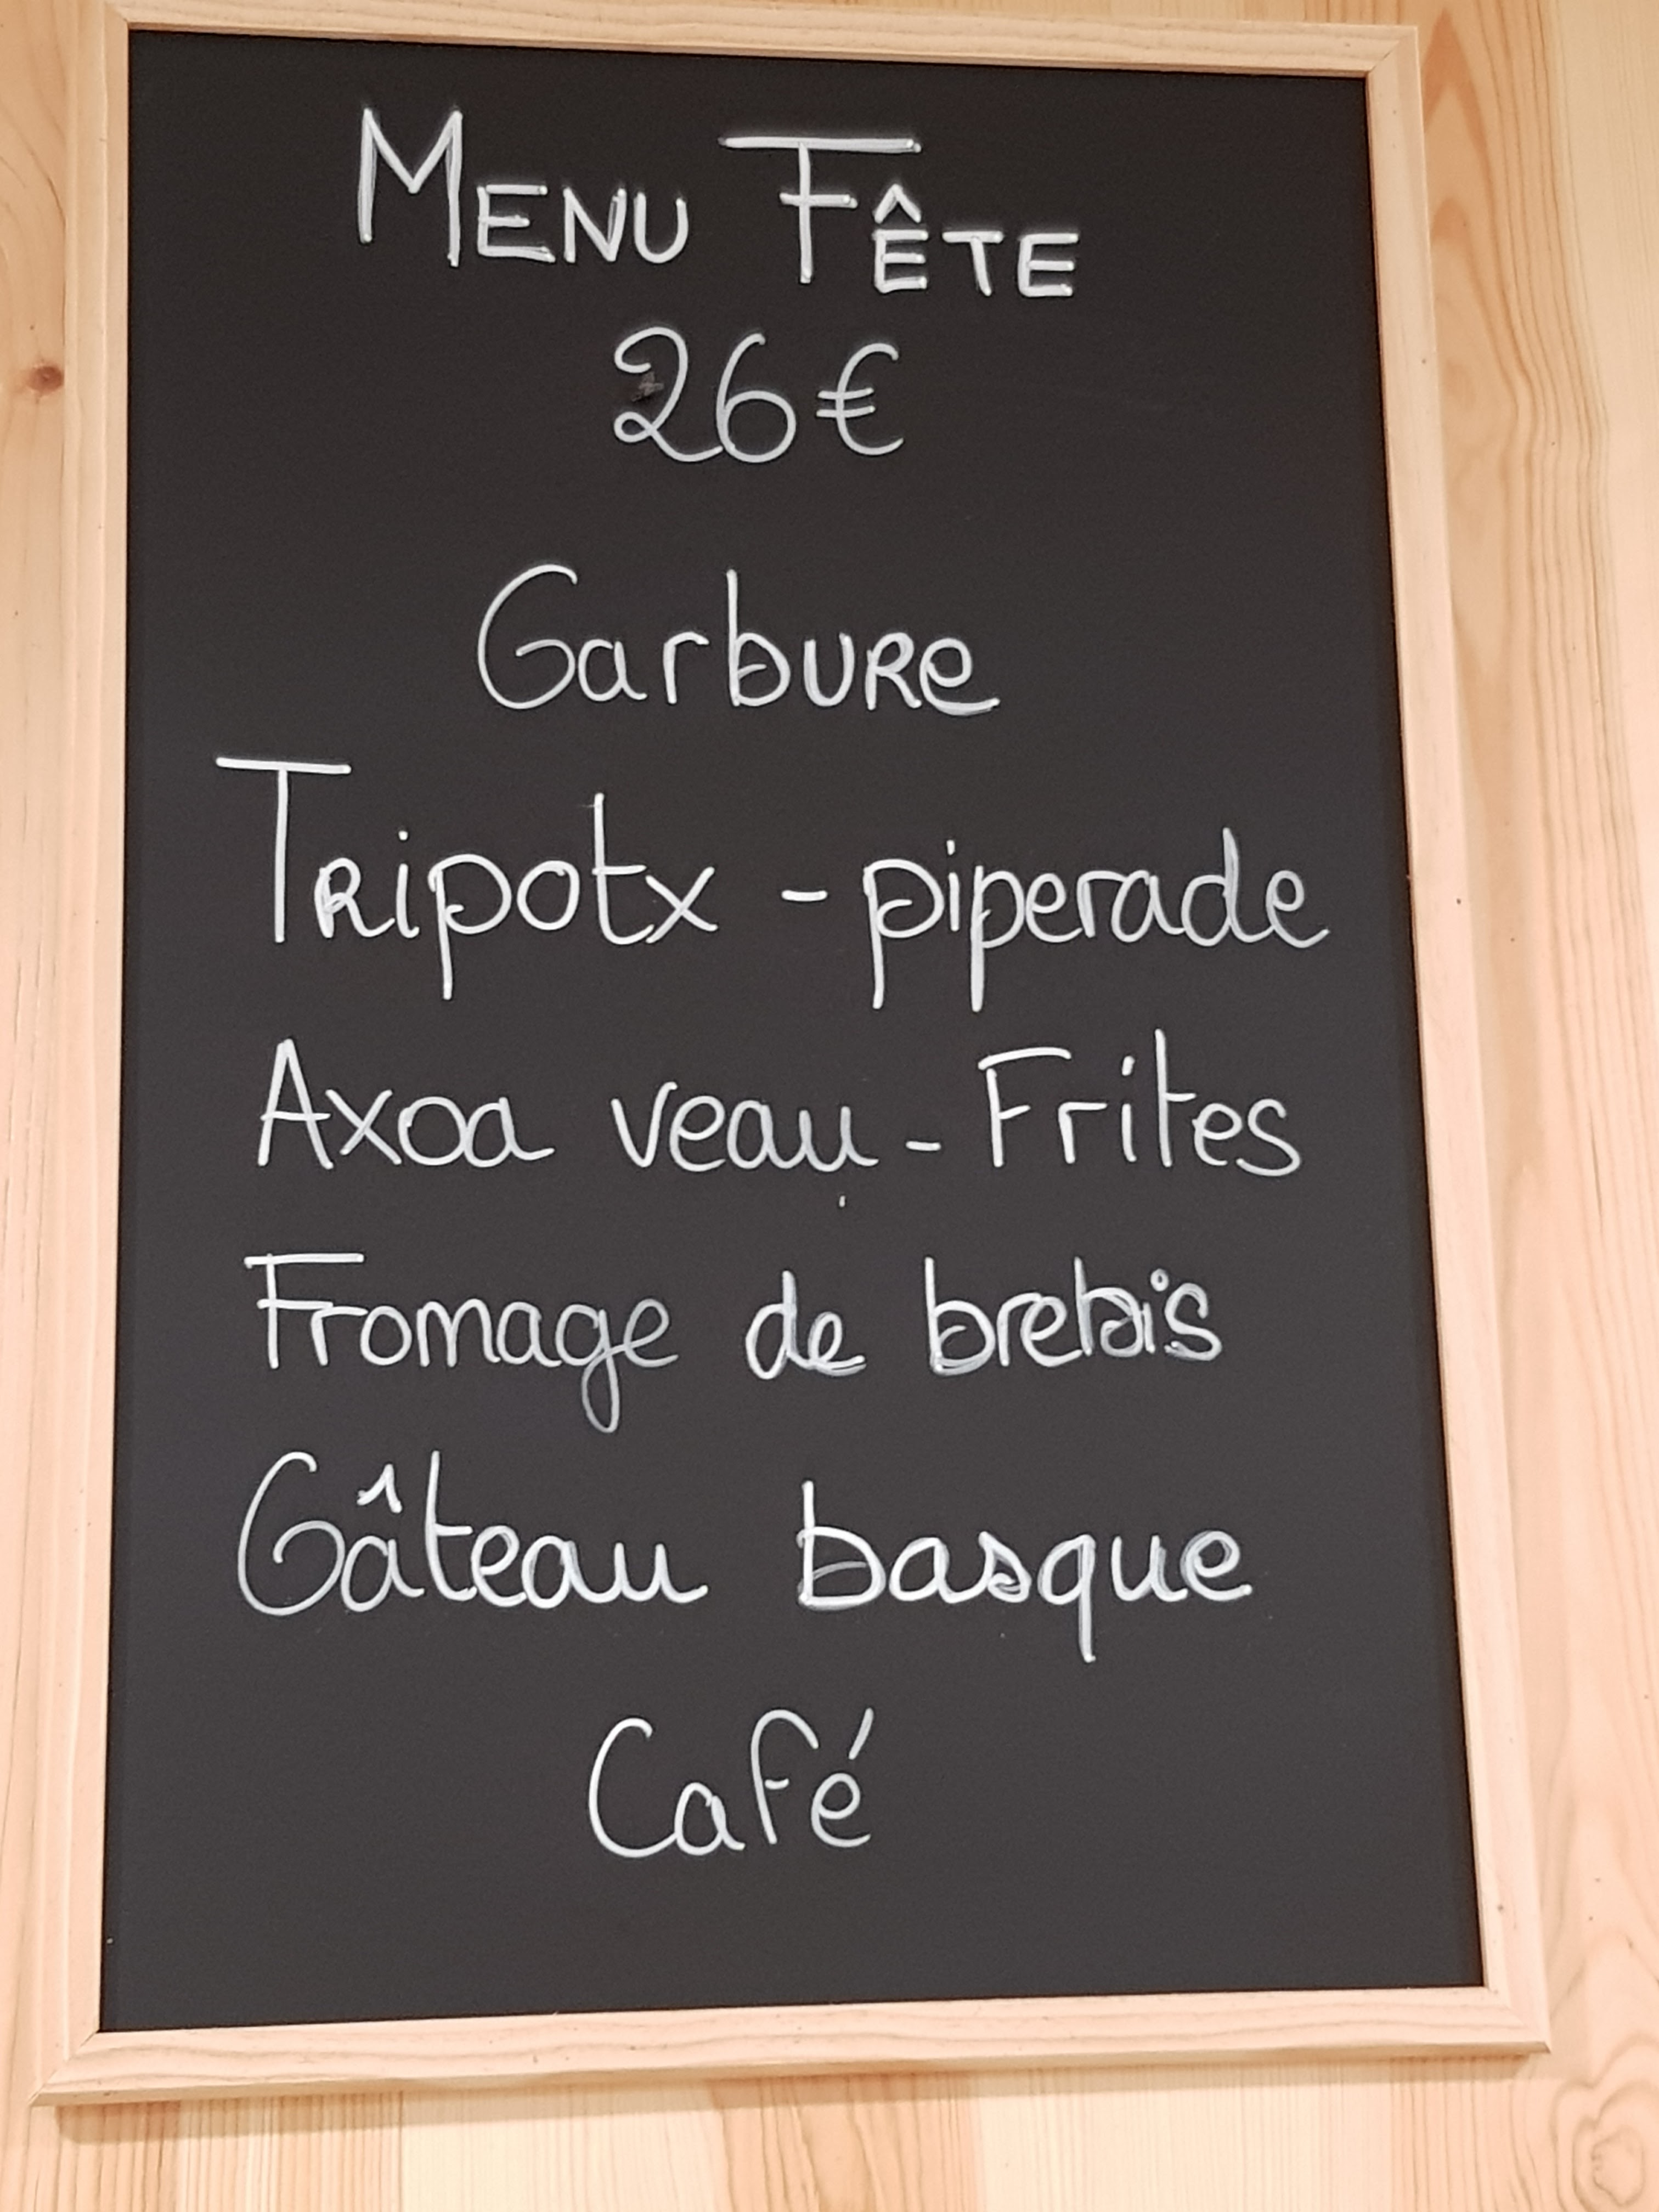 MENU FÊTE
26€
Garbure
Tripotx - piperade
Axoa veau - Frites
Fromage de brebis
Gâteau basque
Café